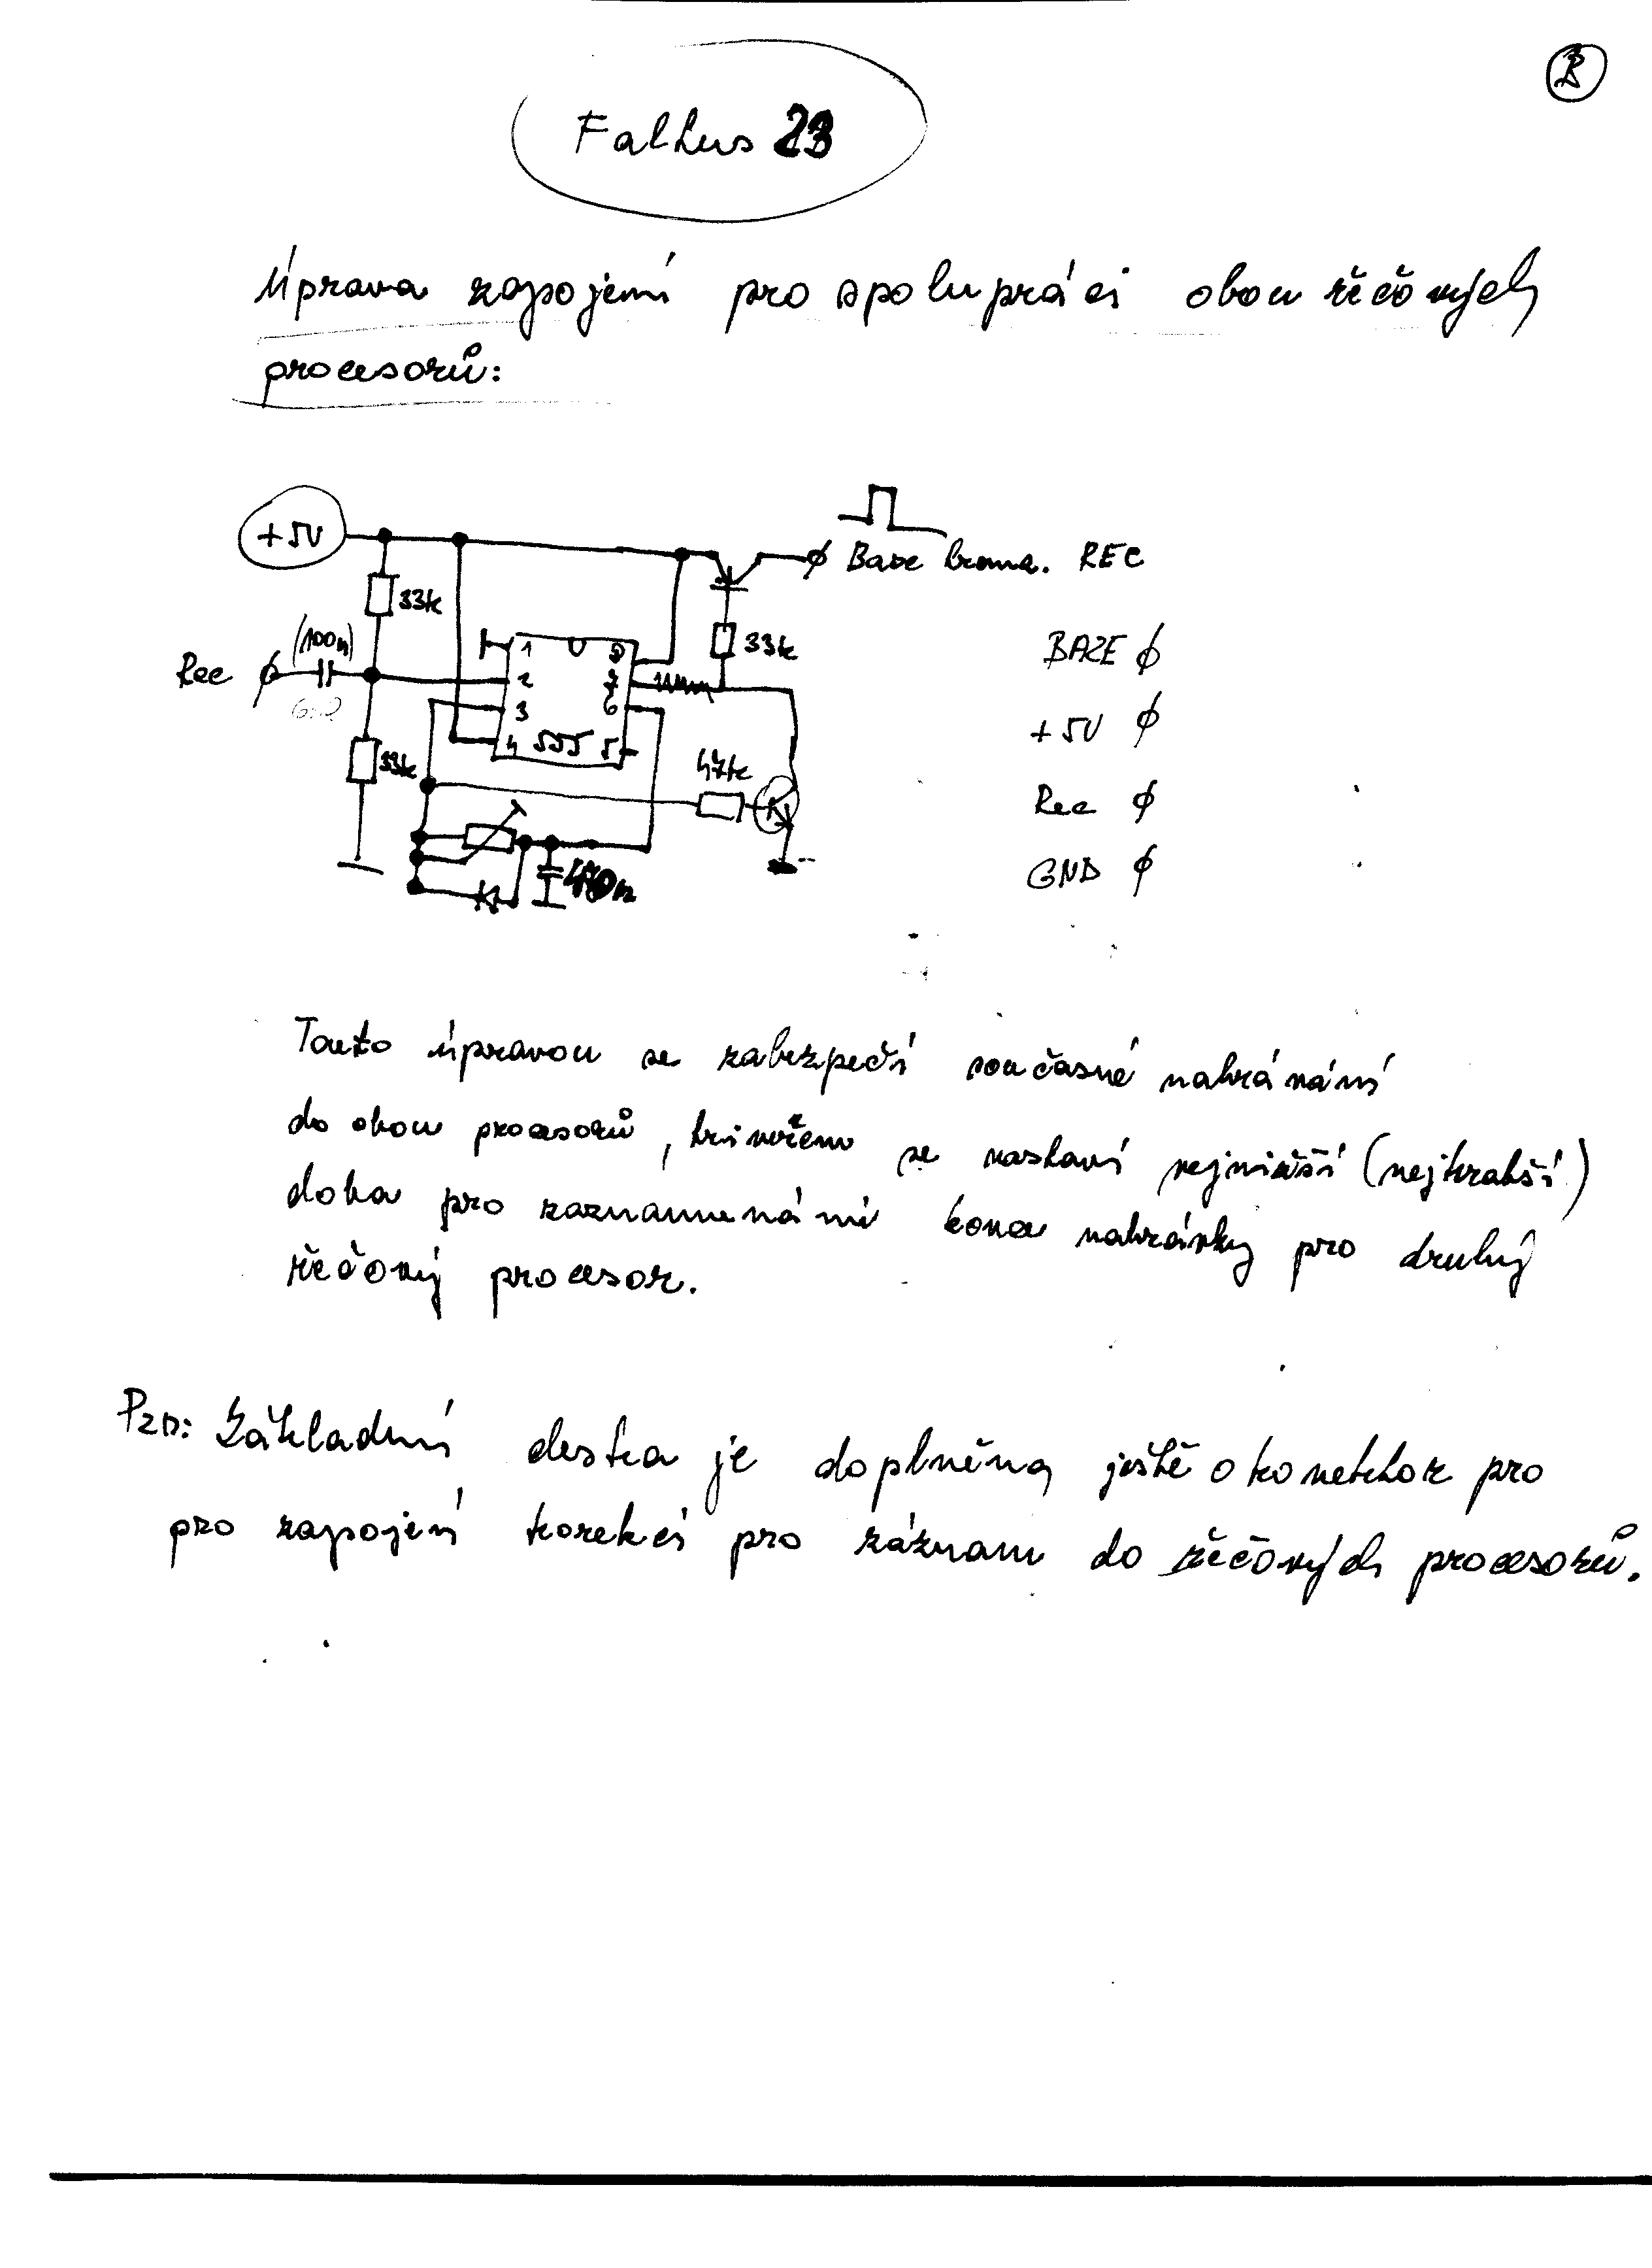 Falkus 23
Úprava zapojení pro spolupráci obou řečových
procesorů:
+5V
33k
(100n)
Rec
33k
1
2
3
4
555
5
6
7
8
33k
47k
470n
Baze koma. REC
BAZE
+5V
Rec
GND
Touto úpravou se zabezpečí současné nahrávání
do obou procesorů, trimrem se nastaví nejnižší (nejkratší)
doba pro zaznamenání konce nahrávky pro druhý
řečový procesor.
Pzn: Základní deska je doplněna ještě o konektor pro
pro zapojení korekcí pro záznam do řečových procesorů.